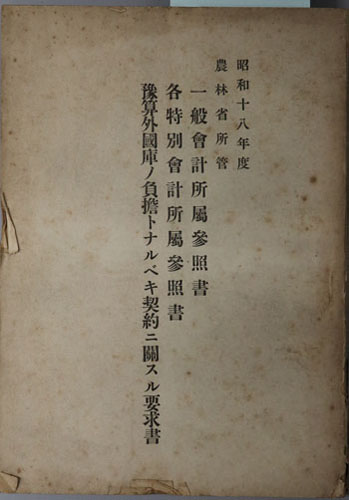 昭和十八年度
農林省所管
一般會計所屬參照書
各特別會計所屬參照書
豫算外國庫ノ負擔トナルベキ契約ニ關スル要求書